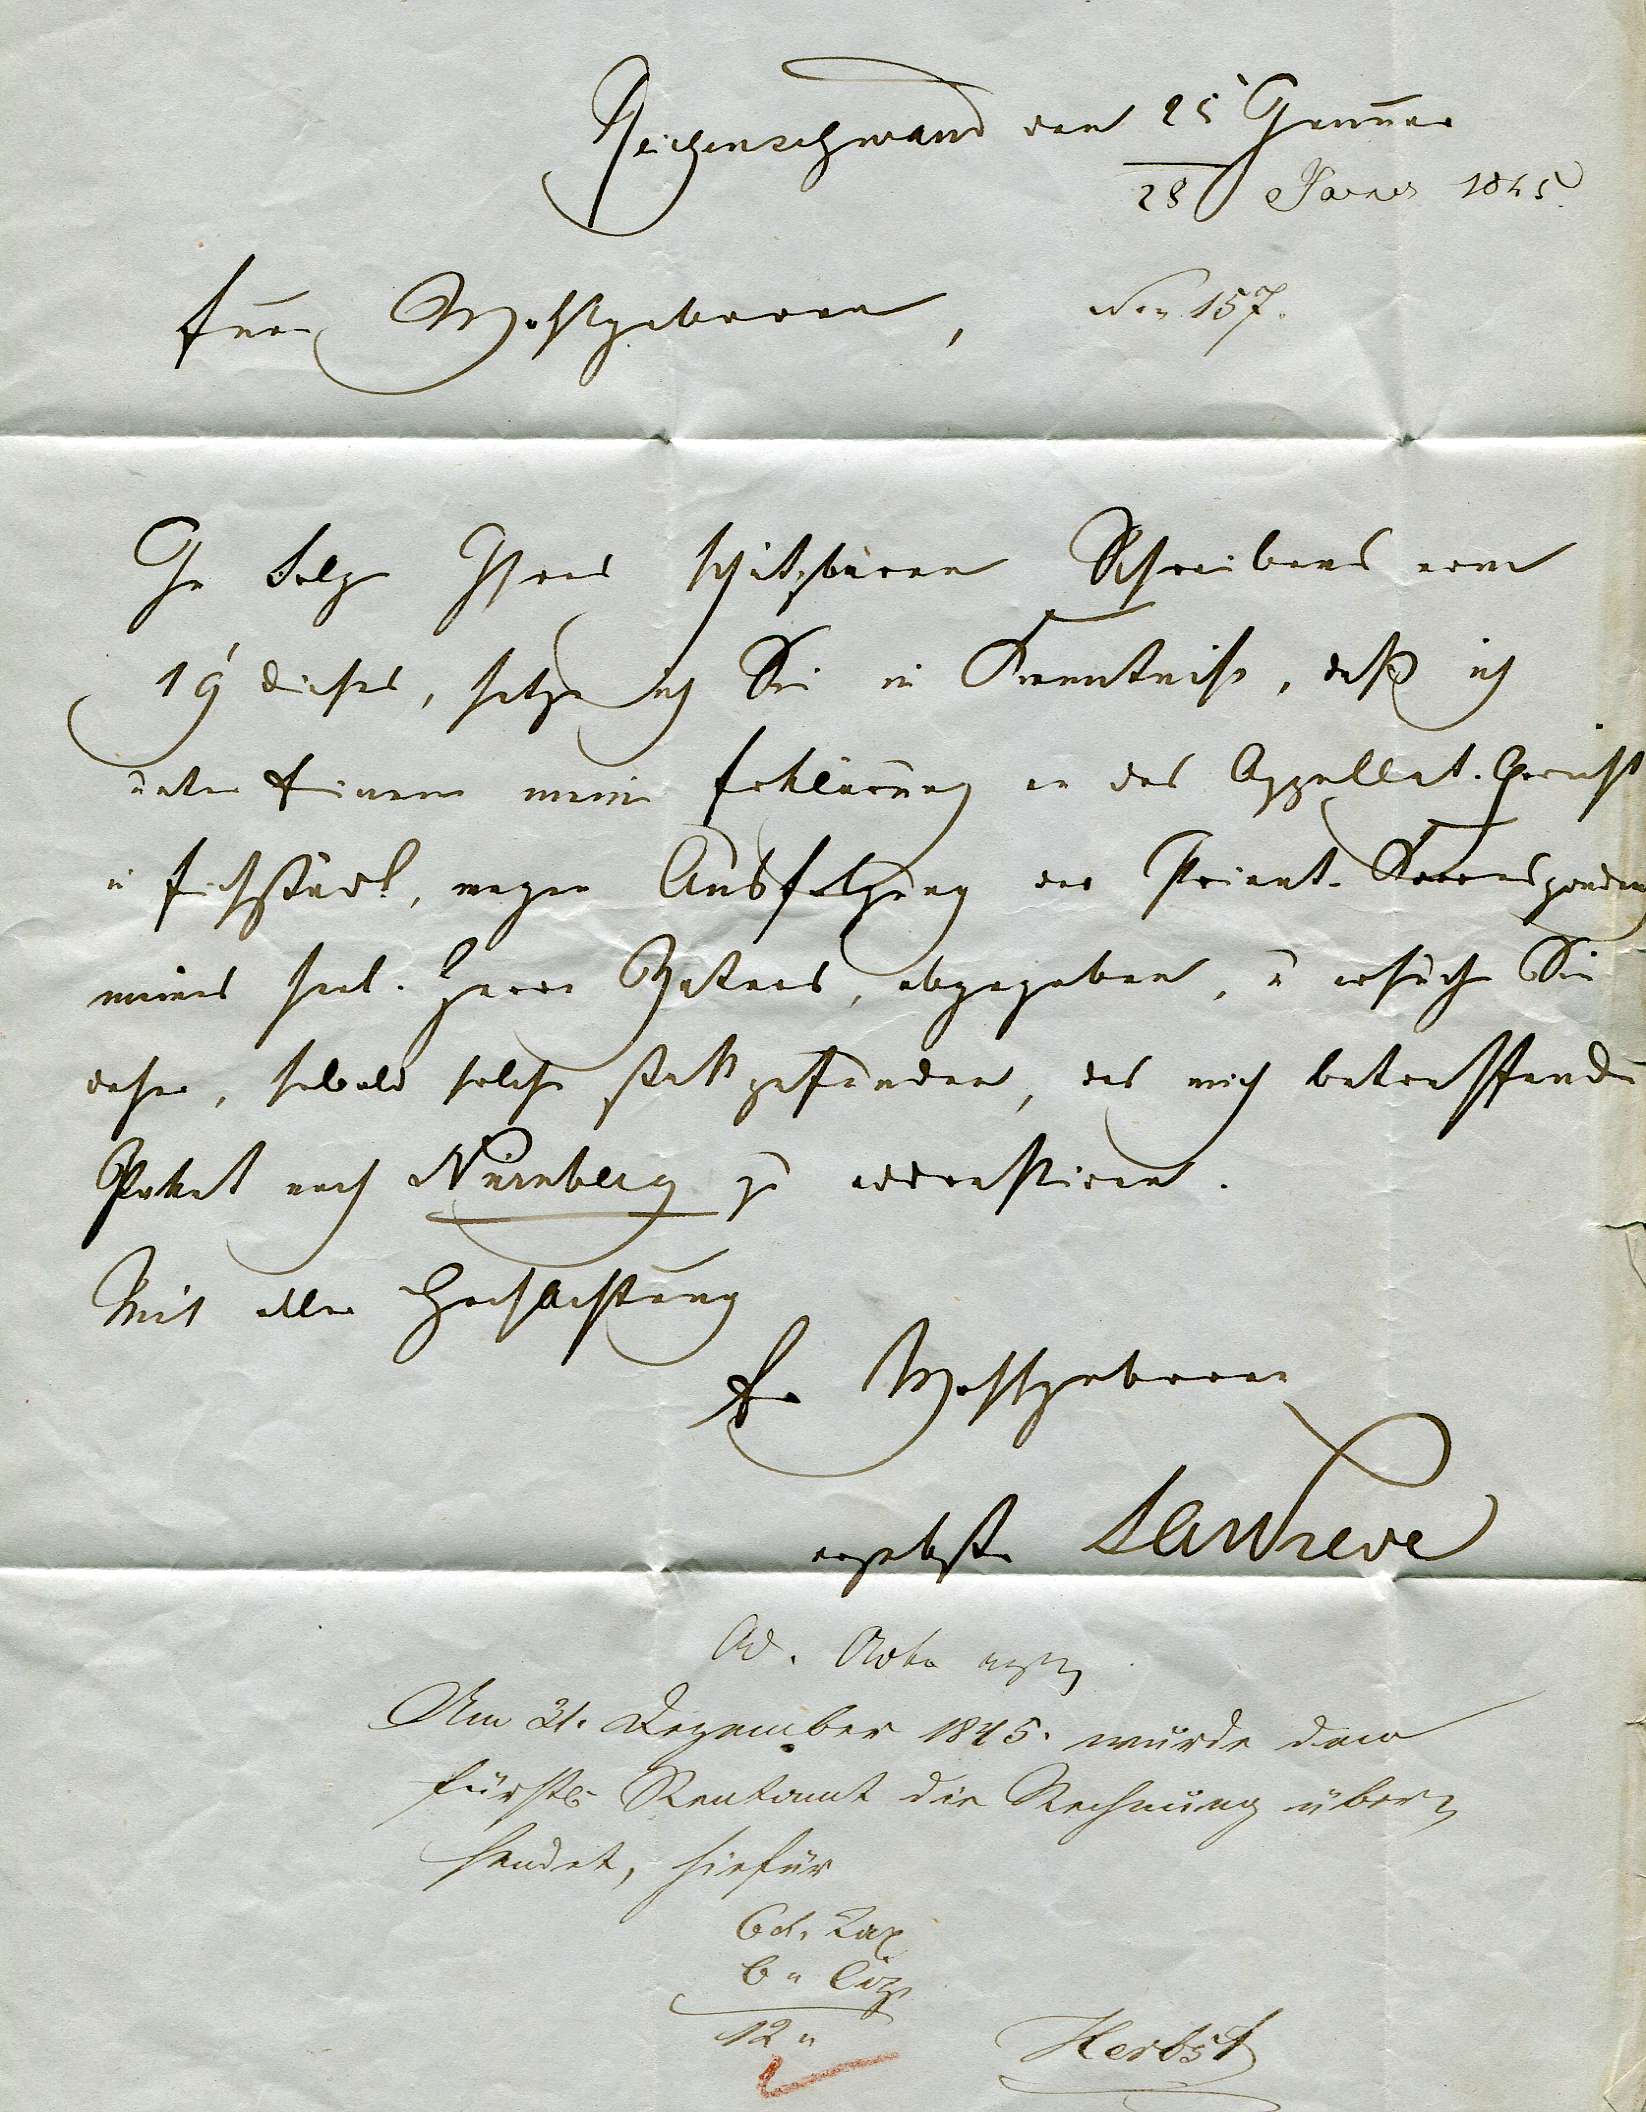 Reichenschwand den 25' Jenner
28 Janer 1845.
Euer Wohlgeboren,
No. 157.
In Folge Ihres schätzbaren Schreibens vom
19' dieses, setze ich Sie in Kenntniß, daß ich
unter meine Erklärung an das Appellat. Gericht
in Eichstädt, wegen Ausfolgung der Privat-Korrespondenz
meines seel. Herrn Vaters, abgegeben, u ersuche Sie
daher, sobald solche statt gefunden, das mich betreffende
Paket nach Nürnberg zu adressiren.
Mit aller Hochachtung
Er Wohlgeboren
ergebster
Ad. Acta
Am 31. Dezember 1845. wurde dem
fürstl. Rentamt die Rechnung über
sendet, hiefür
6 x. Tax
6 "
12 "
Herbst